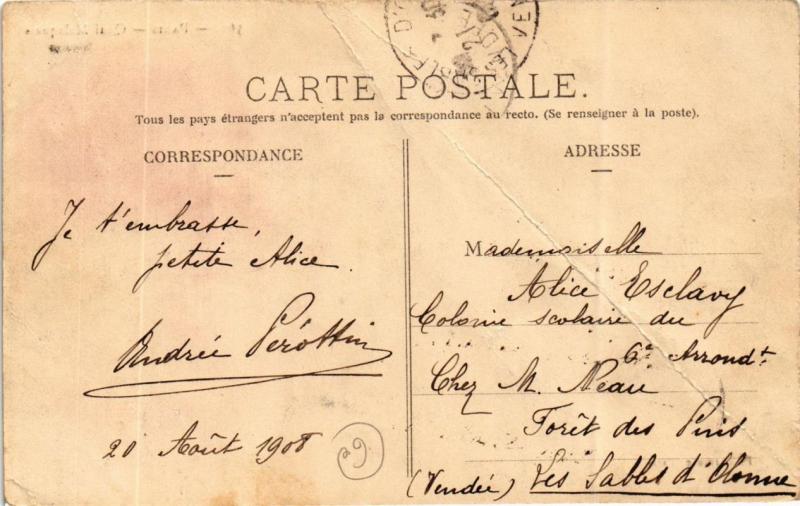 CARTE POSTALE.
Tous les pays étrangers n'acceptent pas la correspondance au recto. (Se renseigner à la poste).
CORRESPONDANCE
ADRESSE
Je t'embrasse,
petite Alice.
Andrée Pérottin
20 Août 1908
29
Mademoiselle
Alice Esclavy
Colonie scolaire du
6e Arrondt.
Chez M. Neau
Forêt des Pins
(Vendée) Les Sables d'Olonne